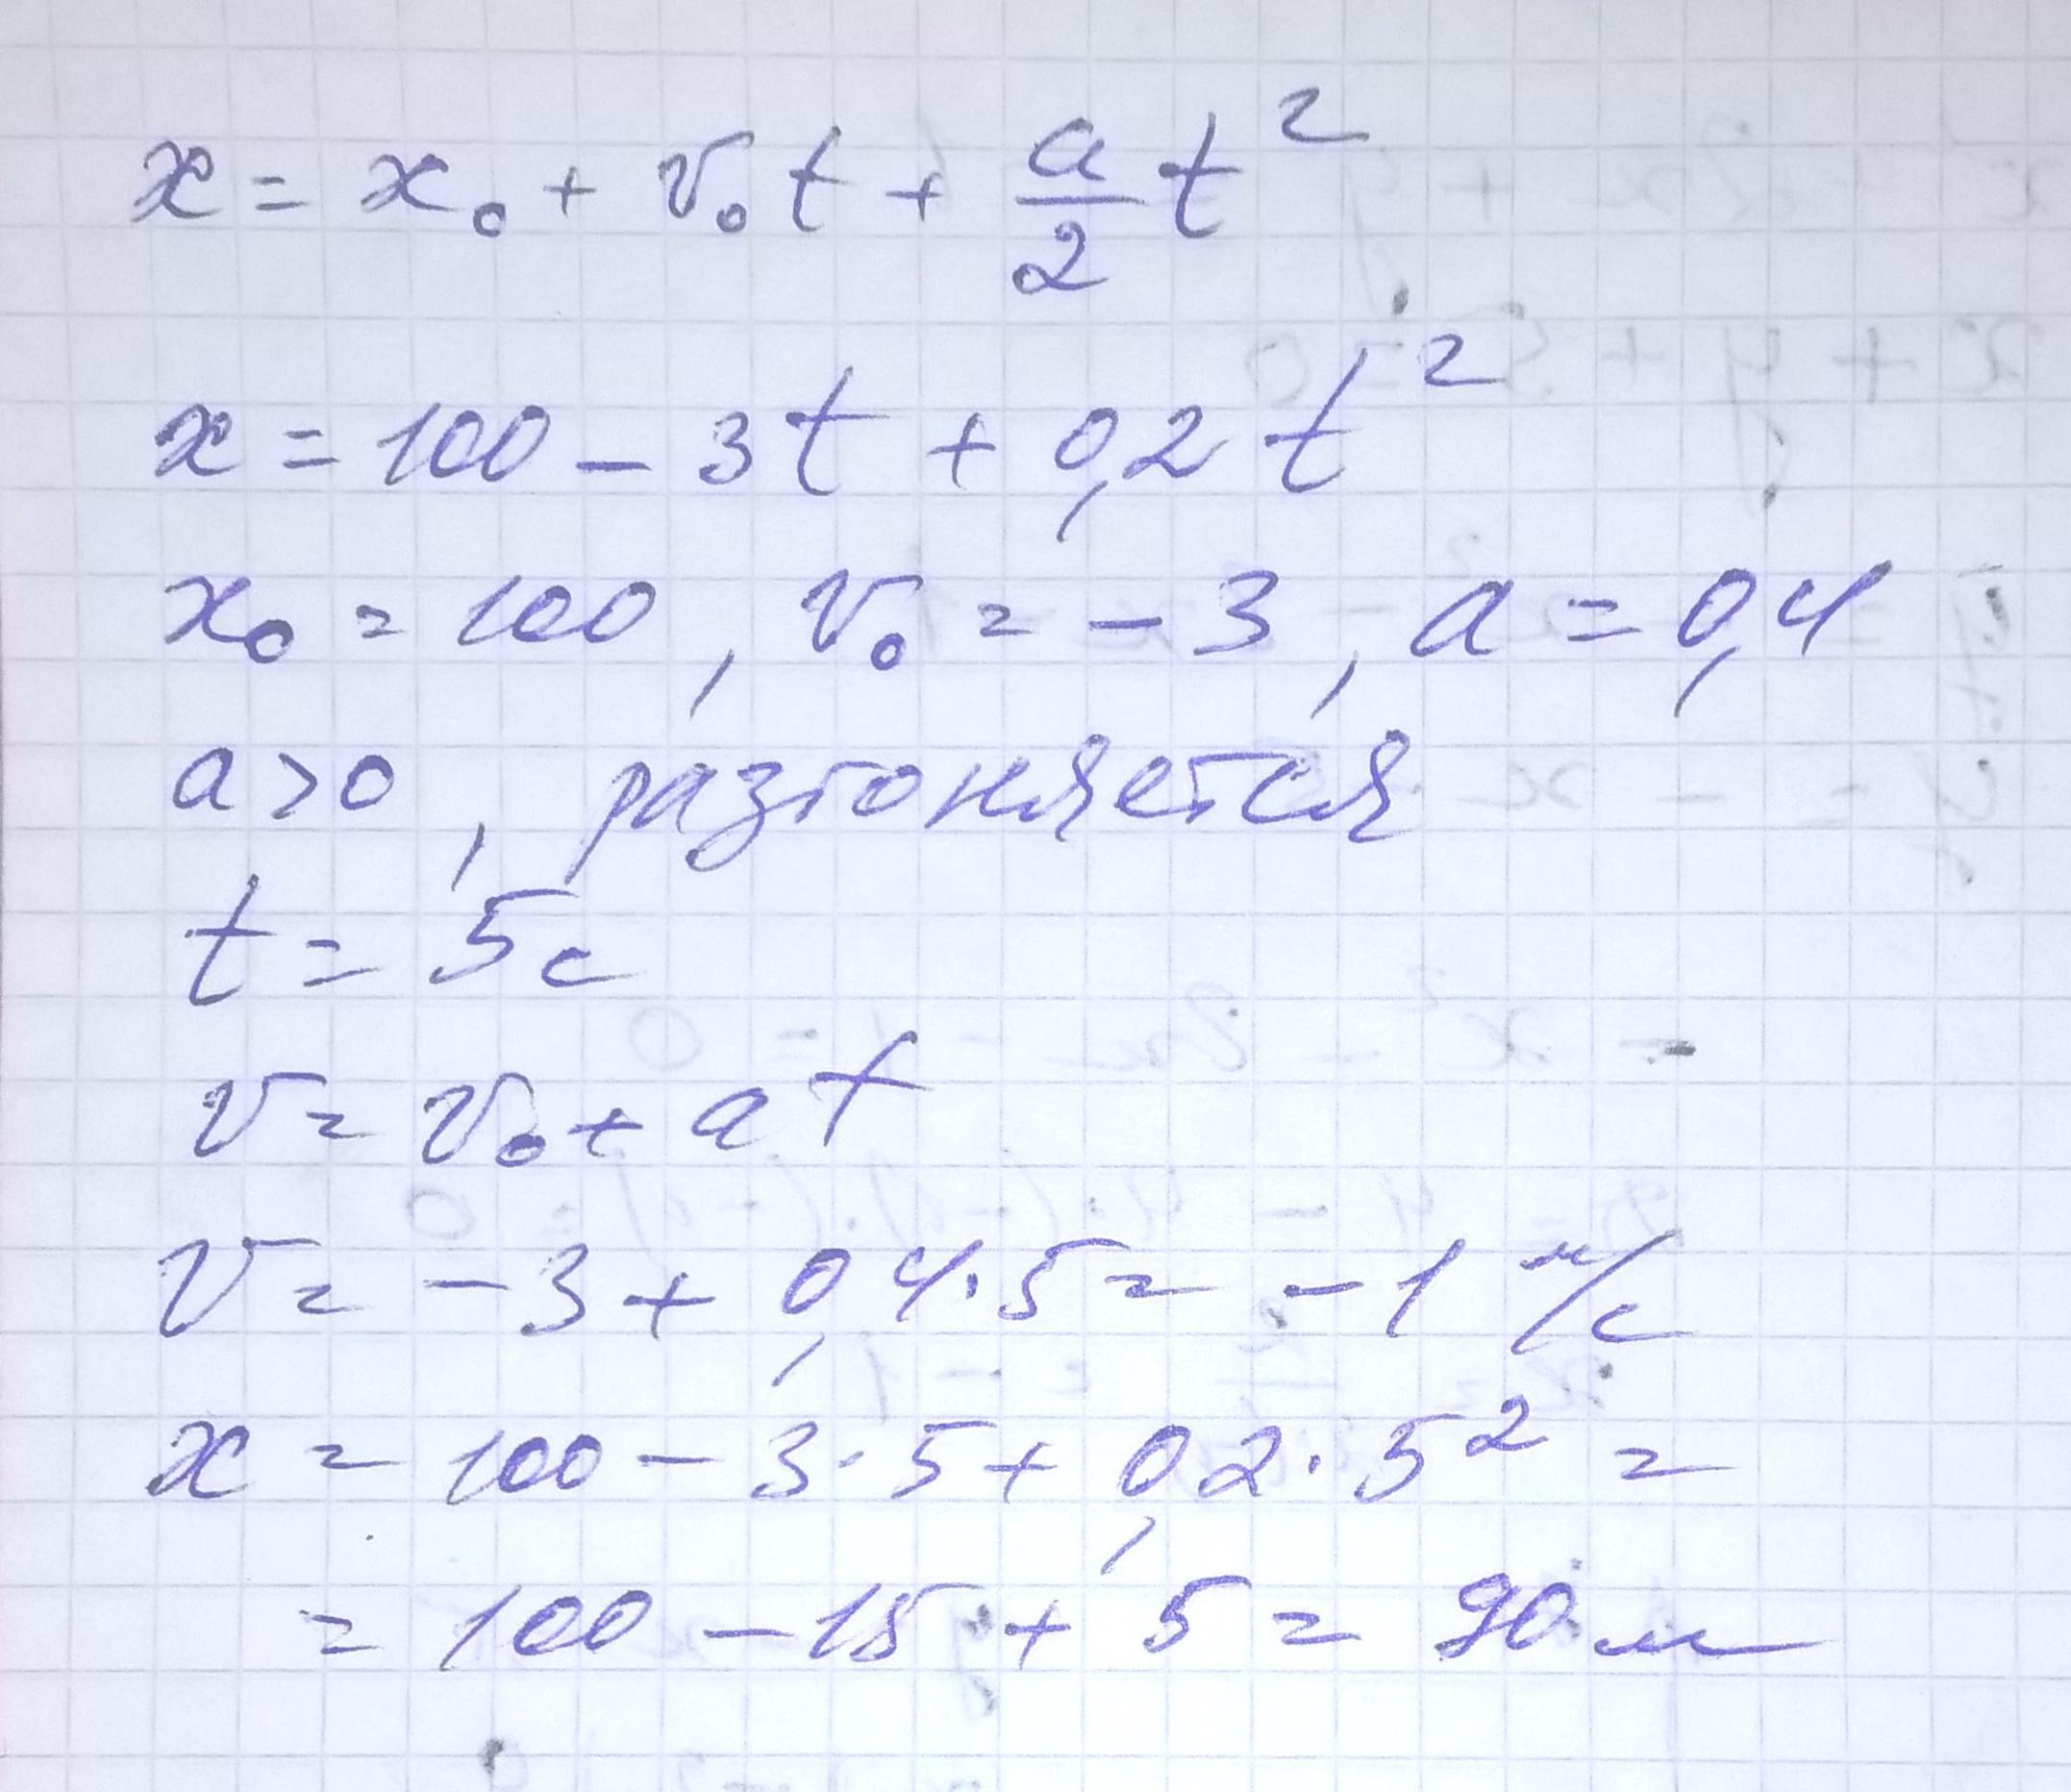 x = x₀ + v₀t + a/2 t²
x = 100 - 3t + 0,2t²
x₀ = 100, v₀ = -3, a = 0,4
a > 0, разгоняется
t = 5с
v = v₀ + at
v = -3 + 0,4·5 = -1 м/с
x = 100 - 3·5 + 0,2·5² =
= 100 - 15 + 5 = 90 м